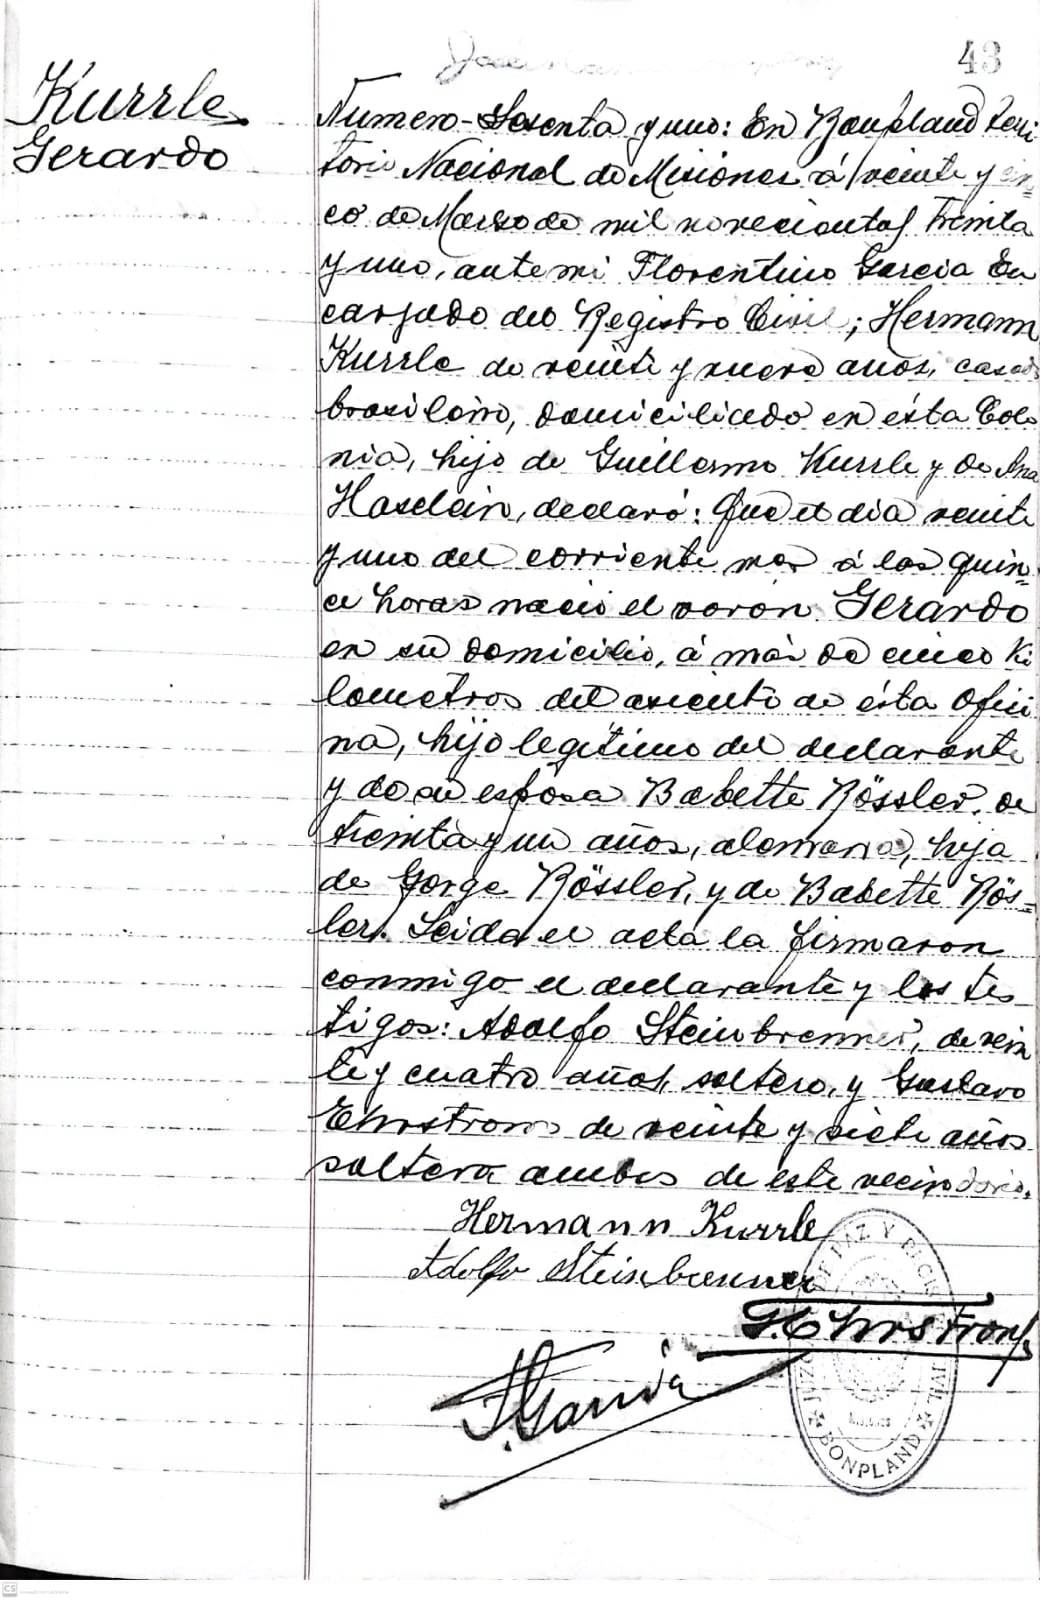 43
Kurrle
Gerardo
Numero - Sesenta y uno: En Bonpland Terri
torio Nacional de Misiones á veinte y cin=
co de Marzo de mil novecientos treinta
y uno, ante mi Florentino Garcia En
cargado del Registro Civil; Hermann
Kurrle de veinte y nueve años, casado
brasilero, domiciliado en ésta Colo
nia, hijo de Guillermo Kurrle y de Ana
declaró: Que el dia veinte
y uno del corriente mes á las quin=
ce horas nació el varon Gerardo
en su domicilio, á más de cinco Ki
lometros del asiento de ésta Ofici
na, hijo legítimo del declarante
y de su esposa Babette Rössler, de
treinta y un años, alemana, hija
de Gorge Rössler, y de Babette Rös=
ler. Leida el acta la firmaron
conmigo el declarante y los tes
tigos: Adolfo Steinbrenner, de vein
te y cuatro años, soltero, y Gustavo
de veinte y siete años
soltero ambos de este vecindario.
Hermann Kurrle
Adolfo Steinbrenner
F. Garcia
JUZ DE PAZ Y REGIS CIVIL
MISIONES
BONPLAND
CS